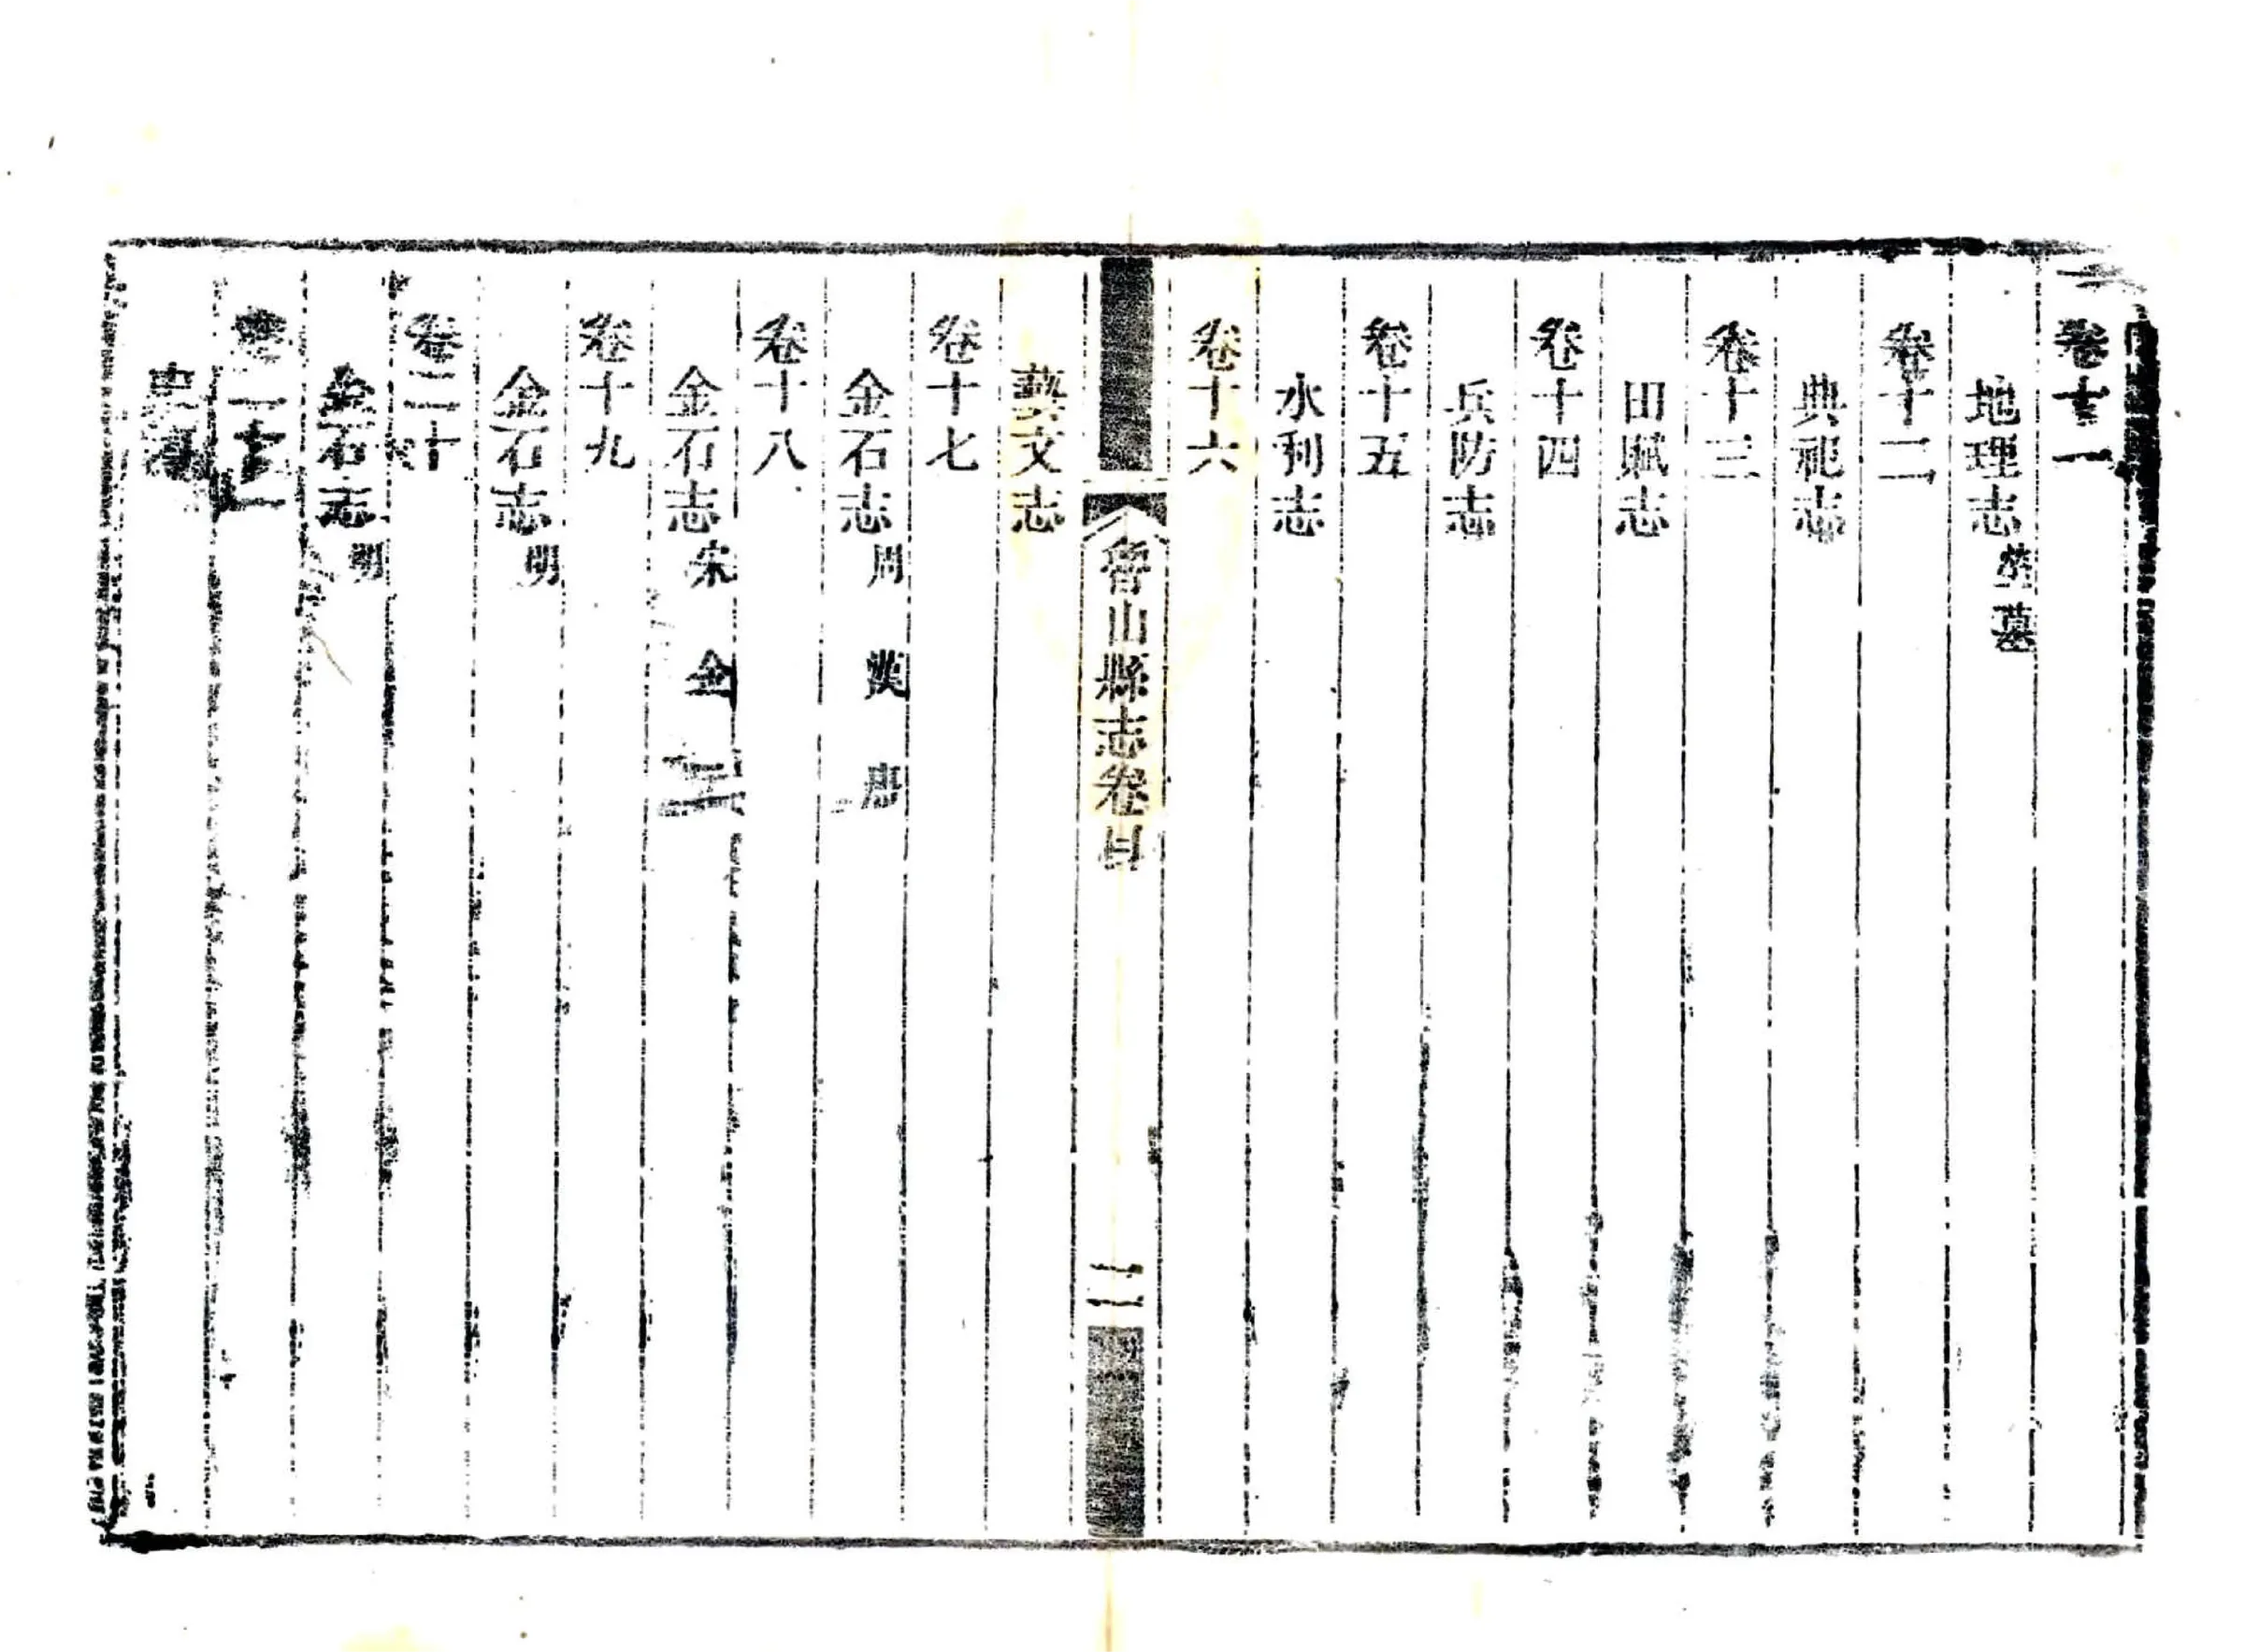 卷十一
地理志 塋墓
卷十二
典祀志
卷十三
田賦志
卷十四
兵防志
卷十五
水利志
卷十六
魯山縣志卷目
二
藝文志
卷十七
金石志 周 漢 唐
卷十八
金石志 宋 金 元
卷十九
金石志 明
卷二十
金石志 明
卷二十一